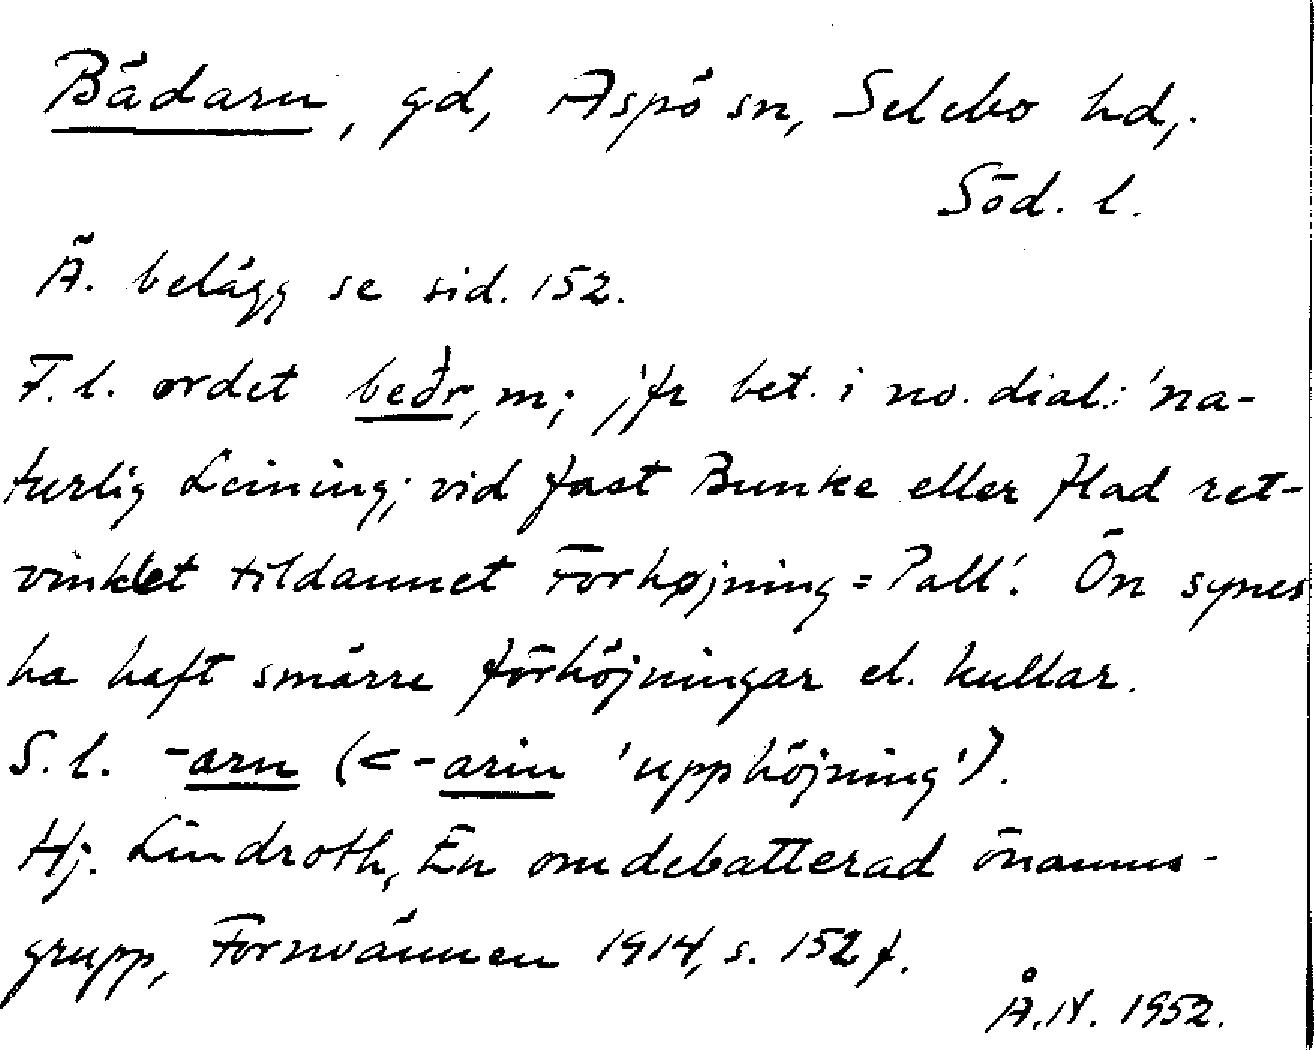 Bädarn, gd, Aspö sn, Selebo hd,
Söd. l.
Ä. belägg se sid. 152.
F. l. ordet beðr, m; jfr bet. i no. dial.: 'na-
turlig Leining; vid fast Bunke eller flad ret-
vinklet tildannet Forhøjning = Pall'. Ön synes
ha haft smärre förhöjningar el. kullar.
S. l. -arn (< -arin 'upphöjning').
Hj. Lindroth, En omdebatterad önamns-
grupp, Fornvännen 1914, s. 152 f.
Å. N. 1952.